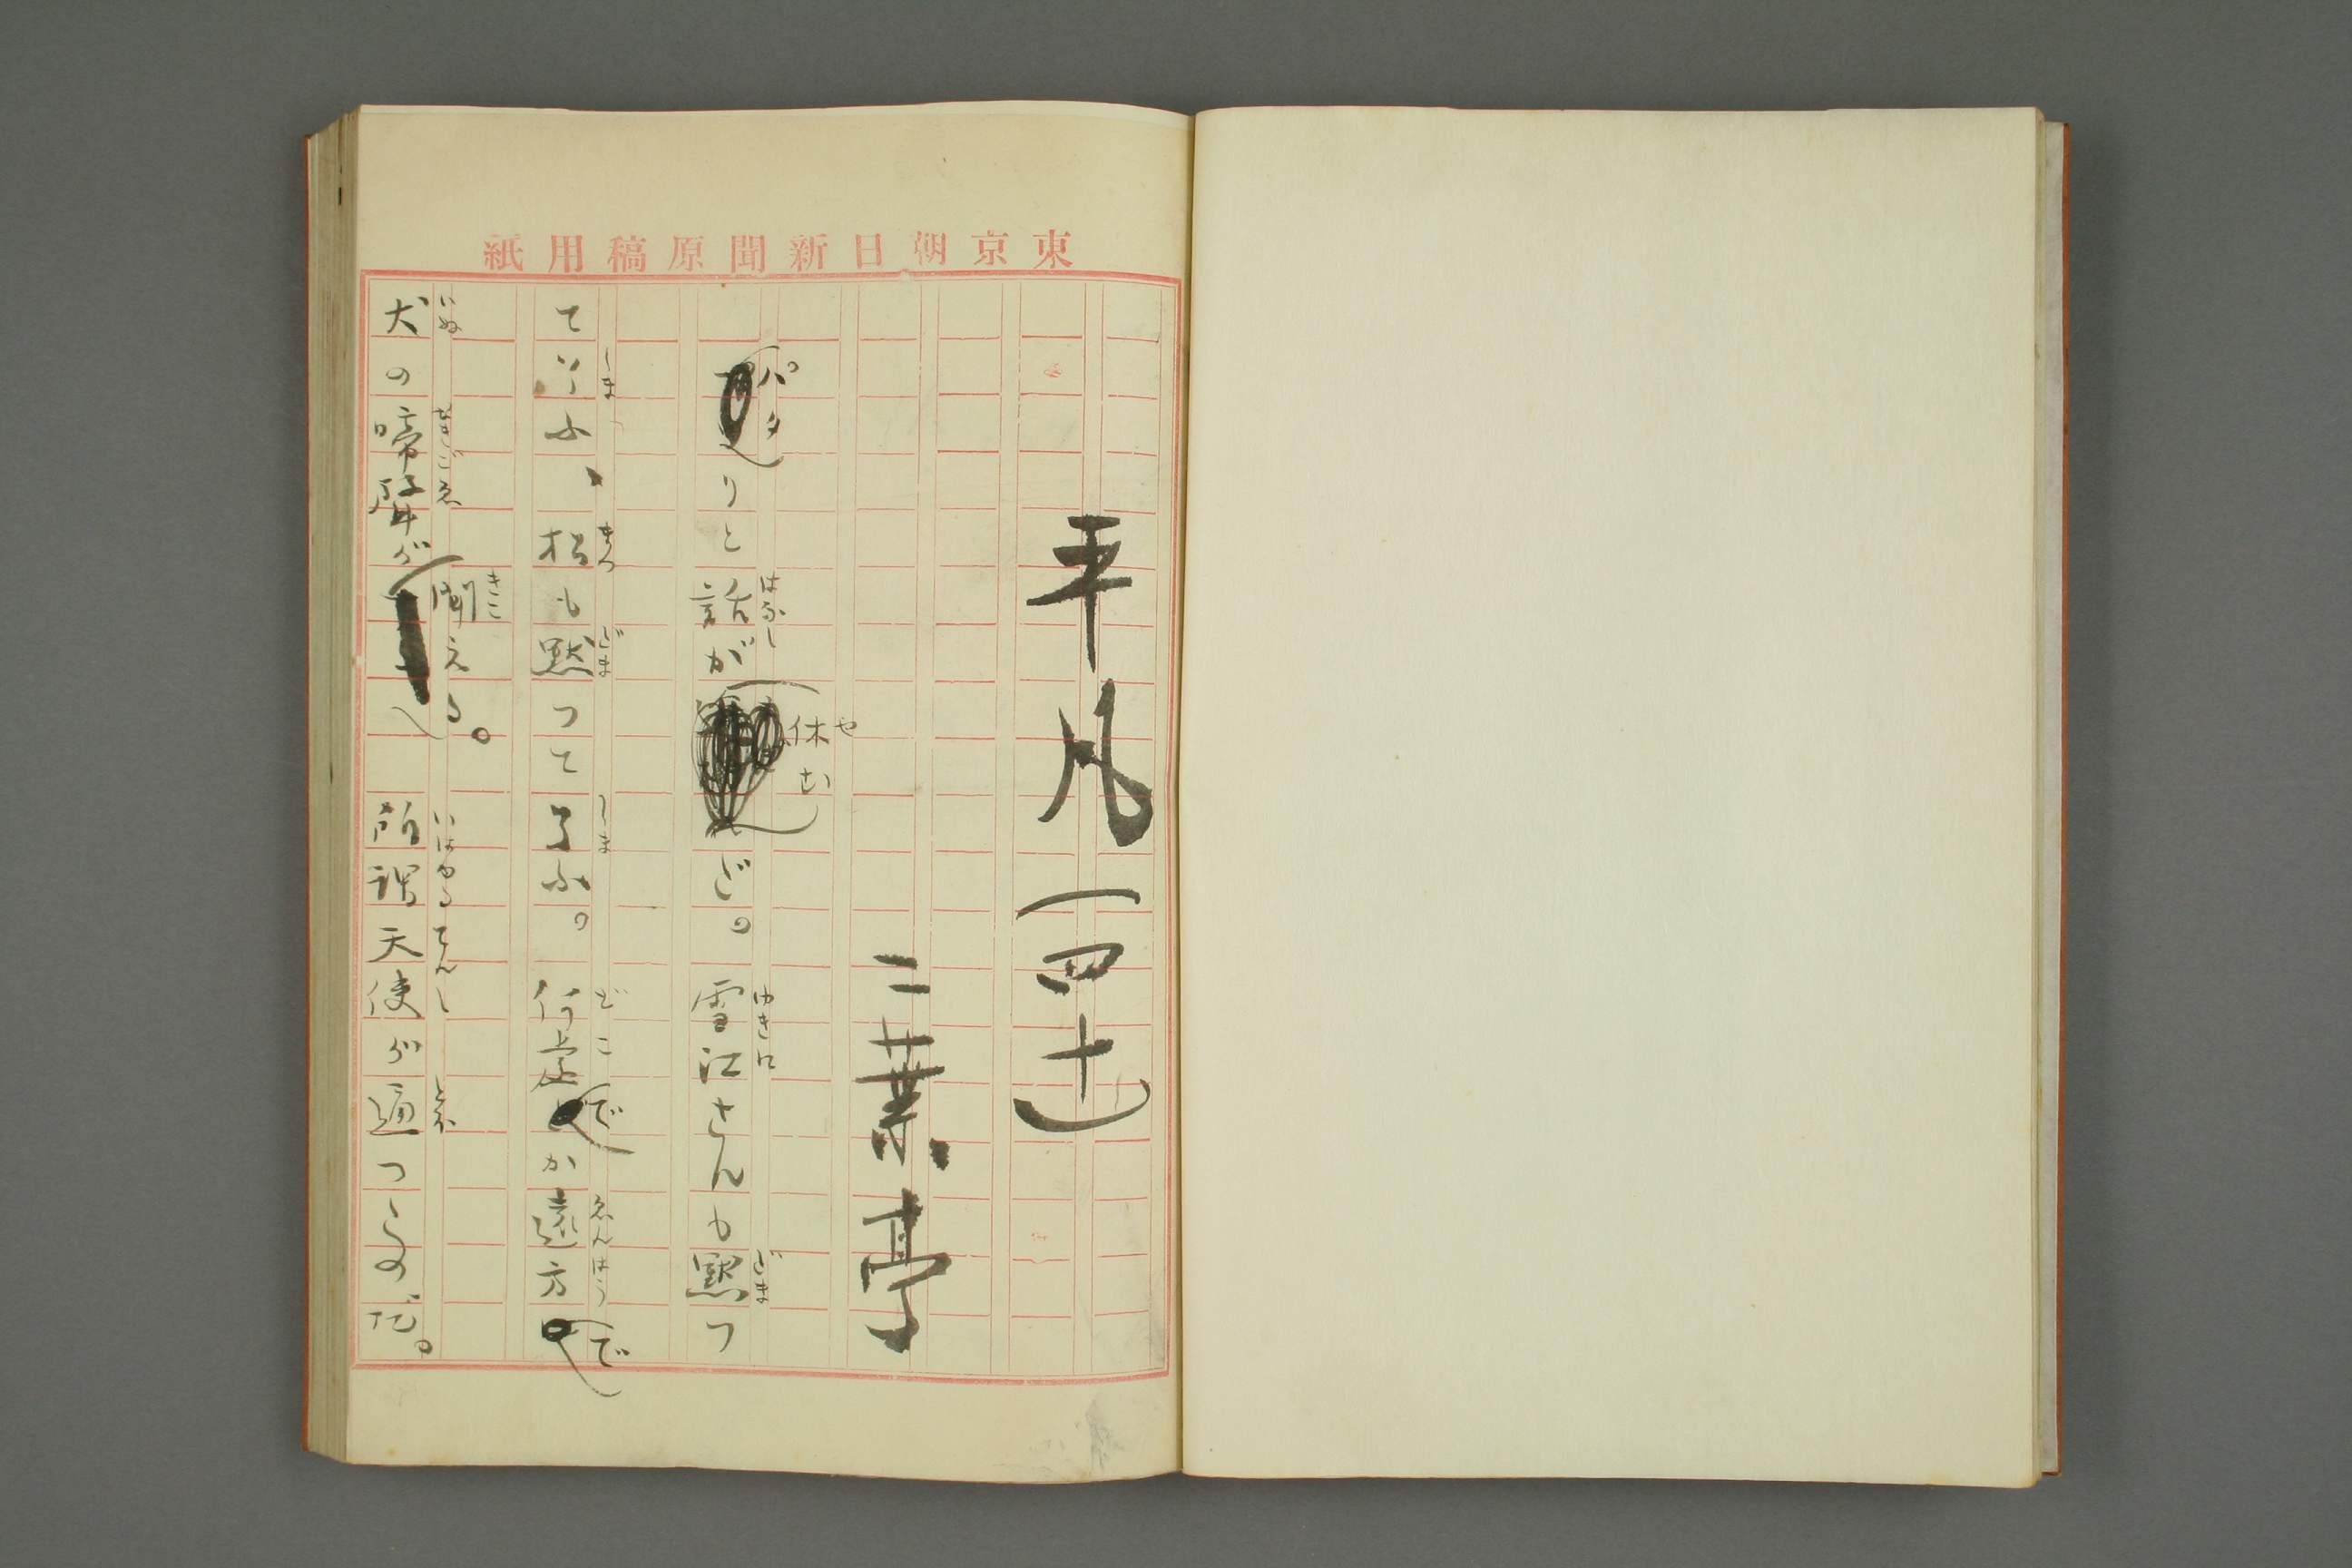 東京朝日新聞原稿用紙
平凡（四十）
二葉亭
パタりと話が休む。雪江さんも黙つ
て了ふ、松も黙つて了ふ。何處でか遠方で
犬の啼聲が聞える。所謂天使が通つたのだ。